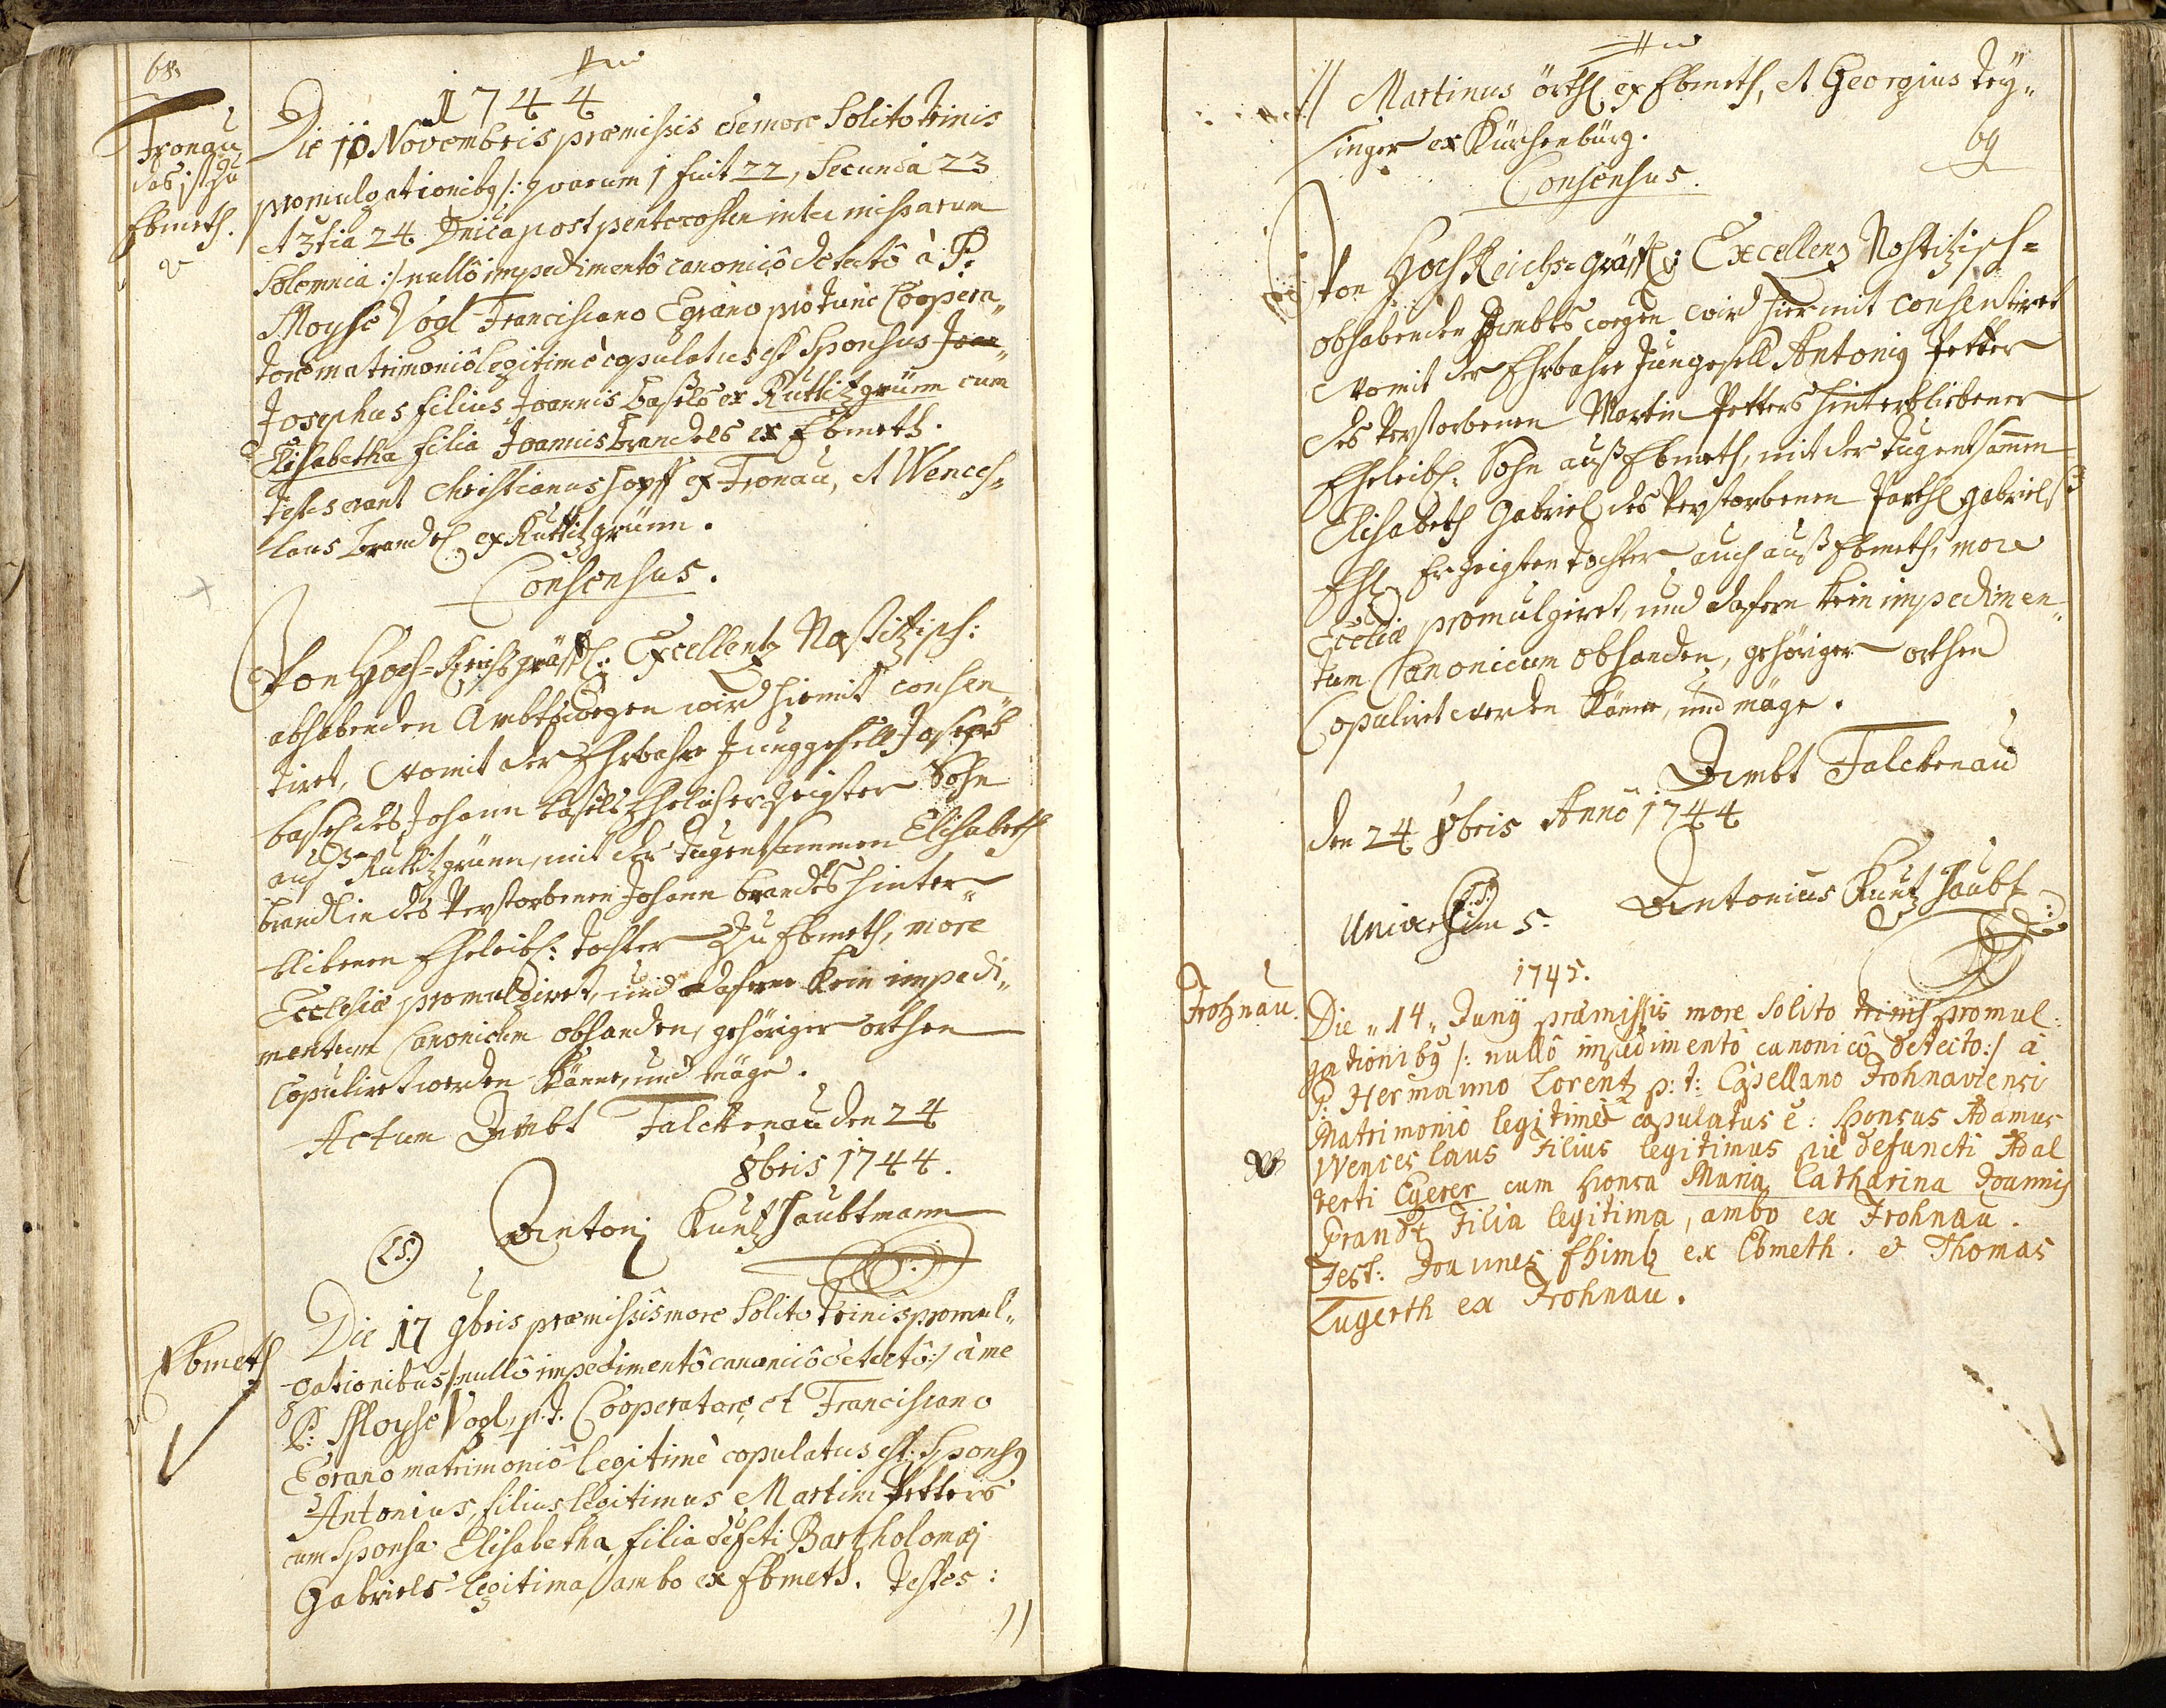 68.
1744
Fronau
das ist zu
Ebmeth.
Die 10 Novembris præmissis de more Solito trinis
promulgationibg /: quarum 1 fuit 22, Secunda 23
et 3tia 24 Dnica post pentecosten inter missarum
Solemnia :/ nullô impedimentô canonicô detectô à P.
Moyse Vogl Franciscano Egrano pro tunc Coopera„
tore matrimoniô legitimè copulatus est Sponsus
Josephus filius Joannis basels ex Ruttitzgrünn cum
Elisabetha filia Joannis brandels ex Ebmeth.
testes erant Christianus hopff ex Fronau, et Wences„
laus brandl ex Ruttitzgrünn.
Consensus.
Von Hoch-Reichsgräffl: Excellentz Nostitzisch:
obhabenden Ambtswegen wird hiemit consen„
tiret, womit der Ehrbahre Junggesell Joseph
basel des Johann basels Ehelich erzeigter Sohn
auß Ruttitzgrünn, mit der tugentsammen Elisabeth
brandlin des Verstorbenen Johann brandls hinter„
blibenen Eheleibl: tochter zu Ebmeth, more
Ecclesiæ promulgiret, und dafern kein impedi„
mentum Canonicum obhanden, gehöriger orthen
Copuliret werden könne, und möge.
Actum Ambt Falckenau den 24
8bris 1744.
(LS.) Antonj Kuntz Haubtmann
Ebmeth
Die 17 9bris præmissis more Solito trinis promul„
gationibus /: nullô impedimentô canonicô detectô :/ à me
P: Moyse Vogl, p.t. Cooperatore, et Franciscano
Egrano matrimoniô legitimè copulatus est: Sponsg
Antonius, filius legitimus Martini Petters
cum Sponsa Elisabetha, filia defcti Bartholomæj
Gabriels legitima, ambo ex Ebmeth. Testes:
//
// Martinus örthl ex Ebmeth, et Georgius trÿ„
singer ex Kürchenbürg.
69
Consensus.
Von Hoch Reichs-gräffl: Excellenz Nostitzisch=
obhabenden Ambts wegen wird hiermit consentiret
womit der Ehrbahre Jungesell Antonig Petter
des Verstorbenen Martin Petters hinterbliebener
Eheleibl: Sohn auß Ebmeth, mit der tugentsamen
Elisabeth Gabriel des Verstorbenen Parthl gabriels
Ehl Erzeigten tochter auch auß Ebmeth, more
Eccliæ promulgiret, und dafern kein impedimen„
tum Canonicum obhanden, gehöriger orthen
Copuliret werden könne, und möge.
Ambt Falckenau
den 24 8bris Annô 1744
(L.S.) Antonius Kuntz Haubt
Universim 5.
1745.
Frohnau.
Die „14„ Junÿ præmissis more solito trinis promul:
gationibg /: nullô impedimentô canonicô detecto :/ à
P: Hermanno Lorentz p: t: Capellano Frohnaviensi
Matrimoniô legitimè copulatus ë: sponsus Adamus
Wenceslaus Filius legitimus pie defuncti Adal
berti Egerer cum sponsa Maria Catharina Joannis
Brandt Filia legitima, ambo ex Frohnau.
Test: Joannes ex Ebmeth. et Thomas
Lugerth ex Frohnau.